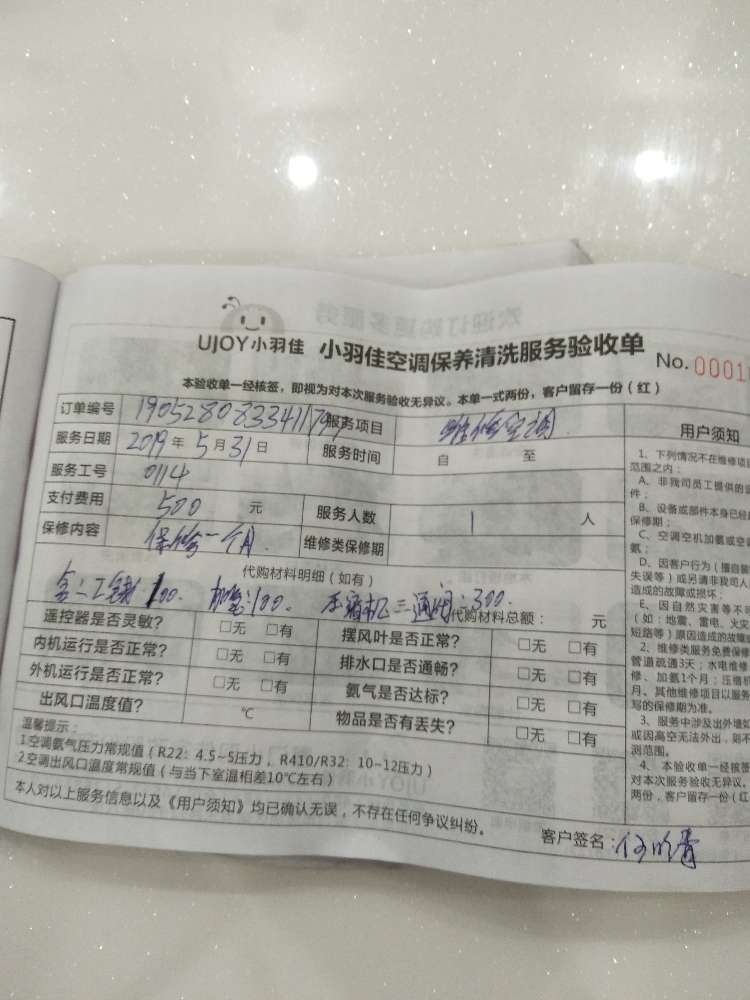 UJOY小羽佳 小羽佳空调保养清洗服务验收单 No.0001
本验收单一经核签，即视为对本次服务验收无异议。本单一式两份，客户留存一份（红）
订单编号 服务项目 维修空调
服务日期 2019年5月31日 服务时间 自 至
服务工号 0114
支付费用 500 元 服务人数 1 人
保修内容 保修一个月. 维修类保修期
代购材料明细（如有）
100. 加氨:100. 压缩机三通阀:300. 代购材料总额： 元
遥控器是否灵敏？ □无 □有 摆风叶是否正常？ □无 □有
内机运行是否正常？ □无 □有 排水口是否通畅？ □无 □有
外机运行是否正常？ □无 □有 氨气是否达标？ □无 □有
出风口温度值？ ℃ 物品是否有丢失？ □无 □有
温馨提示：
1空调氨气压力常规值（R22：4.5~5压力，R410/R32：10~12压力）
2空调出风口温度常规值（与当下室温相差10℃左右）
本人对以上服务信息以及《用户须知》均已确认无误，不存在任何争议纠纷。
客户签名：
用户须知
1、下列情况不在维修项
范围之内：
A、非我司员工提供的
件；
B、设备或部件本身已经
保修期；
C、空调空机加氨或空
氨；
D、因客户行为（擅自
失误等）或另请非我司人
造成的故障或损坏；
E、因自然灾害等不
（如：地震、雷电、火灾
短路等）原因造成的故障
2、维修类服务免费保修
管道疏通3天；水电维修
修、加氨1个月；压缩机
月。其他维修项目以服务
写的保修期为准。
3、服务中涉及出外墙
或因高空无法外出，则不
测范围。
4、本验收单一经核签
对本次服务验收无异议。
两份，客户留存一份（红